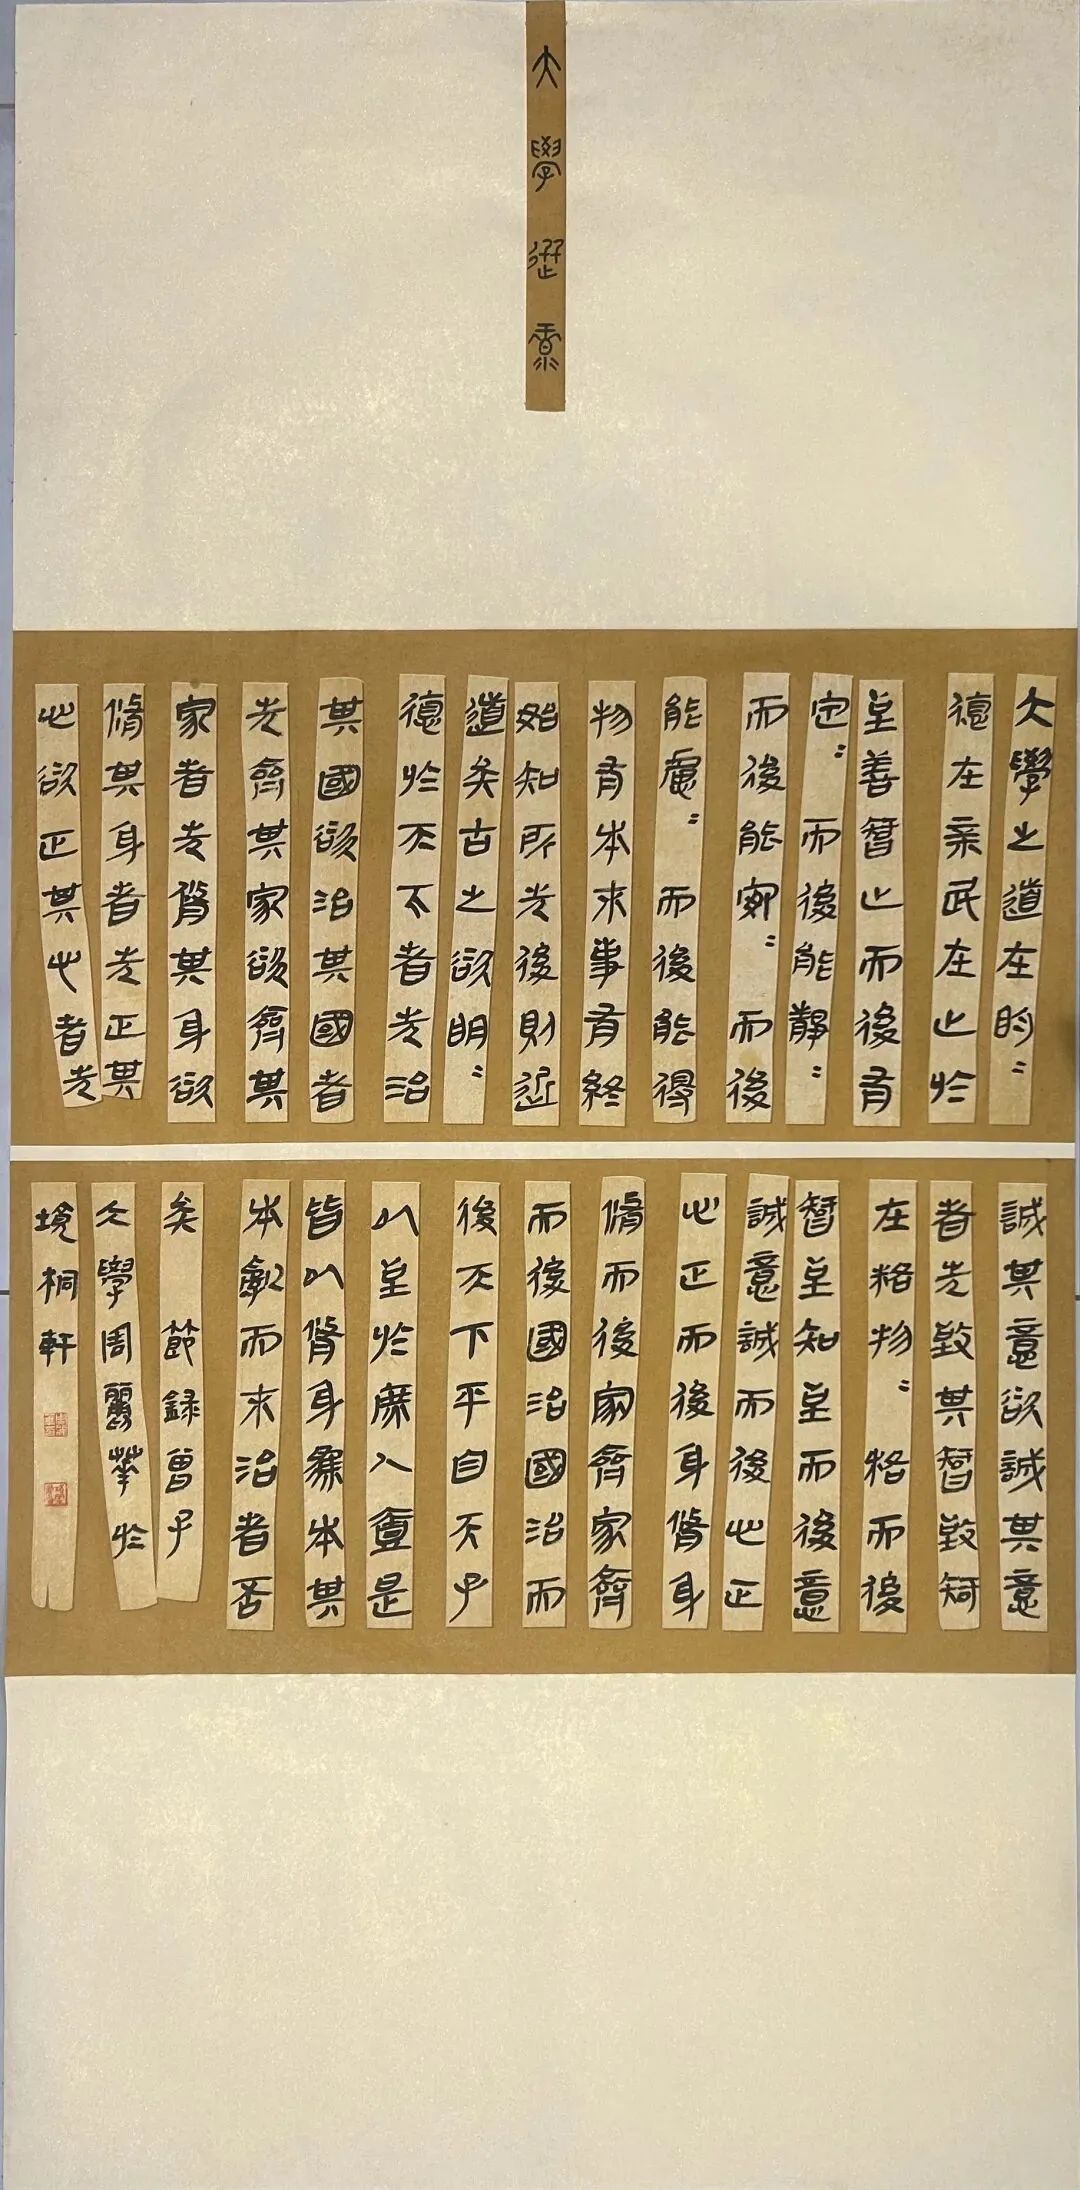 大學
大學之道在明〻
德在亲民在止於
至善智止而後有
定〻而後能靜〻
而後能安〻而後
能慮〻而後能得
物有本末事有終
始知所先後則近
道矣古之欲明〻
德於天下者先治
其國欲治其國者
先齊其家欲齊其
家者先脩其身欲
脩其身者先正其
心欲正其心者先
誠其意欲誠其意
者先致其智致知
在格物〻格而後
智至知至而後意
誠意誠而後心正
心正而後身脩身
脩而後家齊家齊
而後國治國治而
後天下平自天子
以至於庶人壹是
皆以脩身為本其
本亂而末治者否
矣 節録曾子
大學周麗華於
桐軒